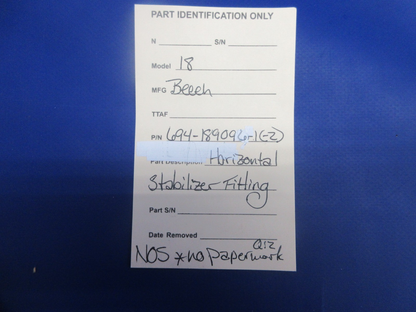 PART IDENTIFICATION ONLY
N S/N
Model 18
MFG Beech
TTAF
P/N 694-189096-1(-2)
Part Description Horizontal
Stabilizer Fitling
Part S/N
Date Removed
Q:2
NOS *no paperwork